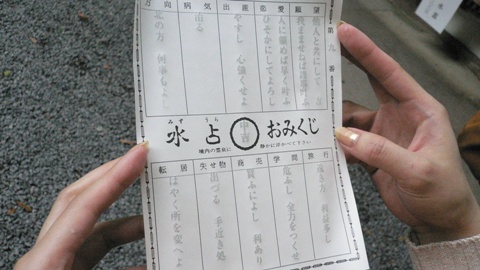 第九番
願望
他人と共にして 吉
恋愛
人に頼めば早く叶ふ
ひそかにしてよろし
出産
やすし 心強くせよ
病気
治る
方向
北の方 何事もよし
みず うら
水占 中吉 おみくじ
境内の霊泉に 静かに浮かべて下さい
旅行
遠き方 利益多し
学問
危ふし 全力をつくせ
商売
買ふによし 利あり
失せ物
出づる 手近き処
転居
はやく所を変へよ